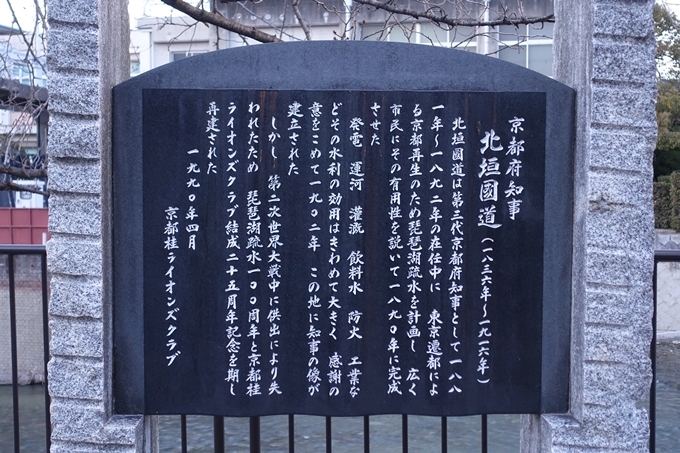 京都府知事
北垣國道（一八三六年～一九一六年）
北垣國道は第三代京都府知事として一八八
一年～一八九二年の在任中に　東京遷都によ
る京都再生のため琵琶湖疏水を計画し　広く
市民にその有用性を説いて一八九〇年に完成
させた
発電　運河　灌漑　飲料水　防火　工業な
どその水利の効用はきわめて大きく　感謝の
意をこめて一九〇二年　この地に知事の像が
建立された
しかし　第二次世界大戦中に供出により失
われたため　琵琶湖疏水一〇〇周年と京都桂
ライオンズクラブ結成二十五周年記念を期し
再建された
一九九〇年四月
京都桂ライオンズクラブ